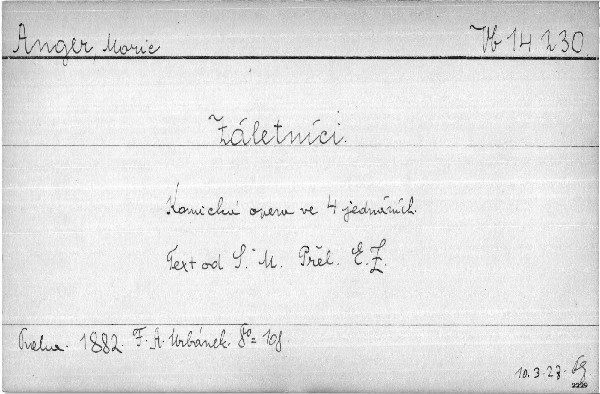 Anger, Moric Vb 14 230.
Záletníci.
Komická opera ve 4 jednáních.
Text od S. M. Přel. E. Z.
Praha. 1882. F. A. Urbánek. 8°=
10.3.23.
2229